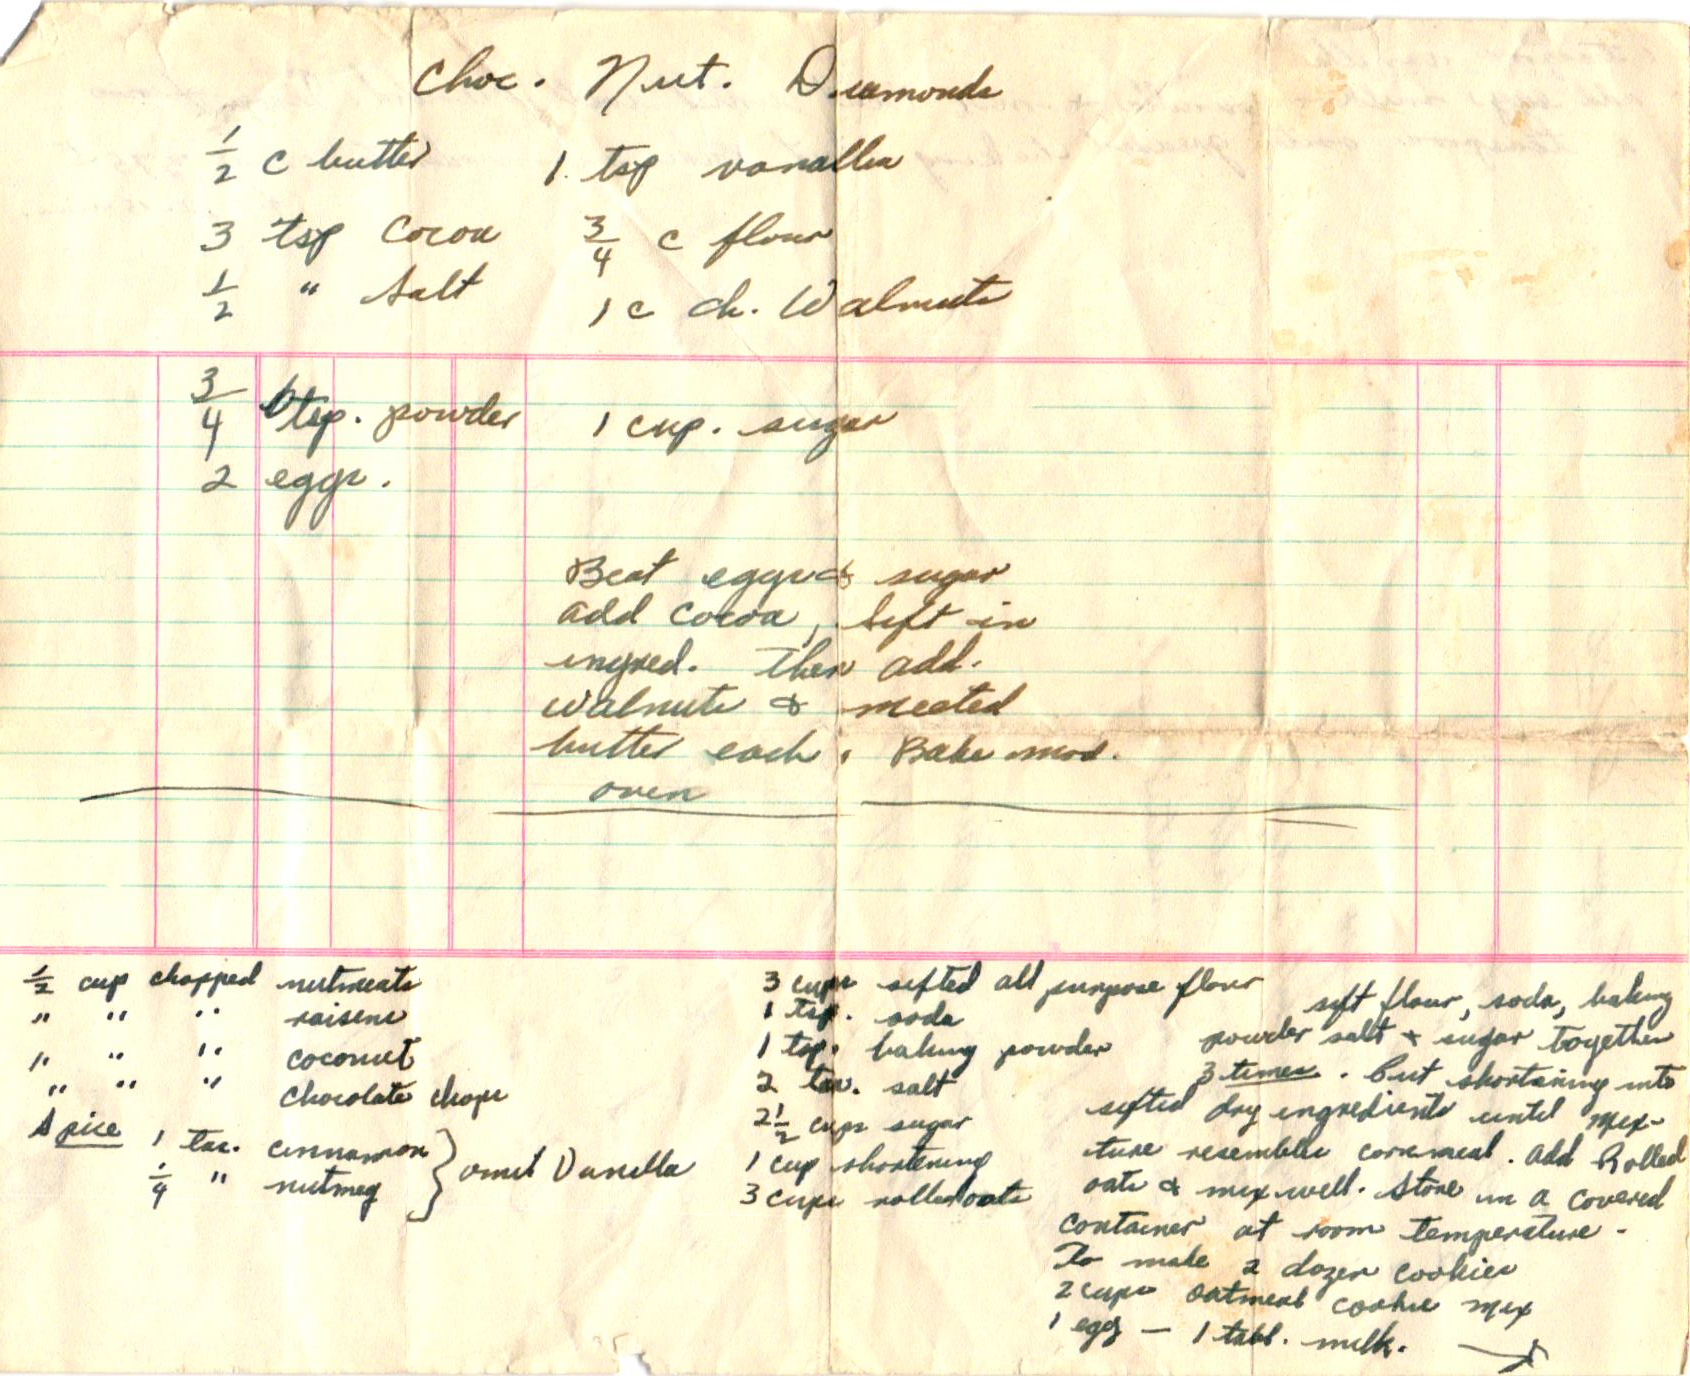 Choc. Nut. Diamonds
1/2 c butter 1 tsp vanallia
3 tsp Cocoa 3/4 c flour
1/2 " Salt 1 c ch. Walnuts
3/4 b tsp. powder 1 cup. sugar
2 eggs.
Beat eggs & sugar
add cocoa, Sift in
ingred. Then add.
walnuts & meeted
butter each. Bake mod.
oven
1/2 cup chopped nutmeats
" " " raisens
" " " coconut
" " " Chocolate chips
Spice 1 tas. cinnamon } omit Vanilla
1/4 " nutmeg
3 cups sifted all purpose flour
1 tsp. soda
1 tsp. baking powder
2 tas. salt
2 1/2 cups sugar
1 cup shortening
3 cups rolled oats
sift flour, soda, baking
powder salt & sugar together
3 times. Cut shortening into
sifted dry ingredients until mix-
ture resembles cornmeal. add Rolled
oats & mix well. Store in a covered
container at room temperature -
To make 2 dozen cookies
2 cups oatmeal cookie mix
1 egg — 1 tabl. milk.